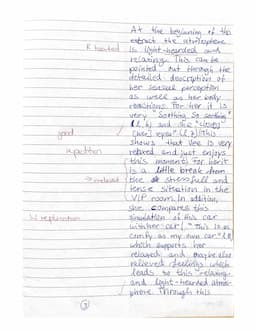 At the beginning of the
extract the atmosphere
R hearted
is light-hearded and
relaxing. This can be
pointed out through the
detailed description of
her sensual perception
as well as her body
reactions. For her it is
very "soothing. So soothing"
and she "closes"
eyes" This
good
shows that Vee is very
repetition
relaxed and just enjoys
this moment. For her it
is a little break from
the stressfull and
tense situation in the
VIP room. In addition,
she compares this
W repetition
simulation of this car
with her car "This is as
comfy as my own car"
which supports her
relaxed and maybe also
relieved feelings which
leads to this "relaxing
and light-hearted atmos-
phere. Through this